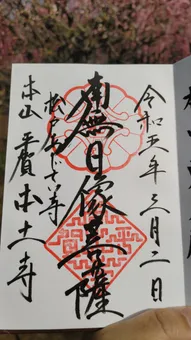 令和五年三月二日
南無日像菩薩
あじさい寺
本山 平賀本土寺